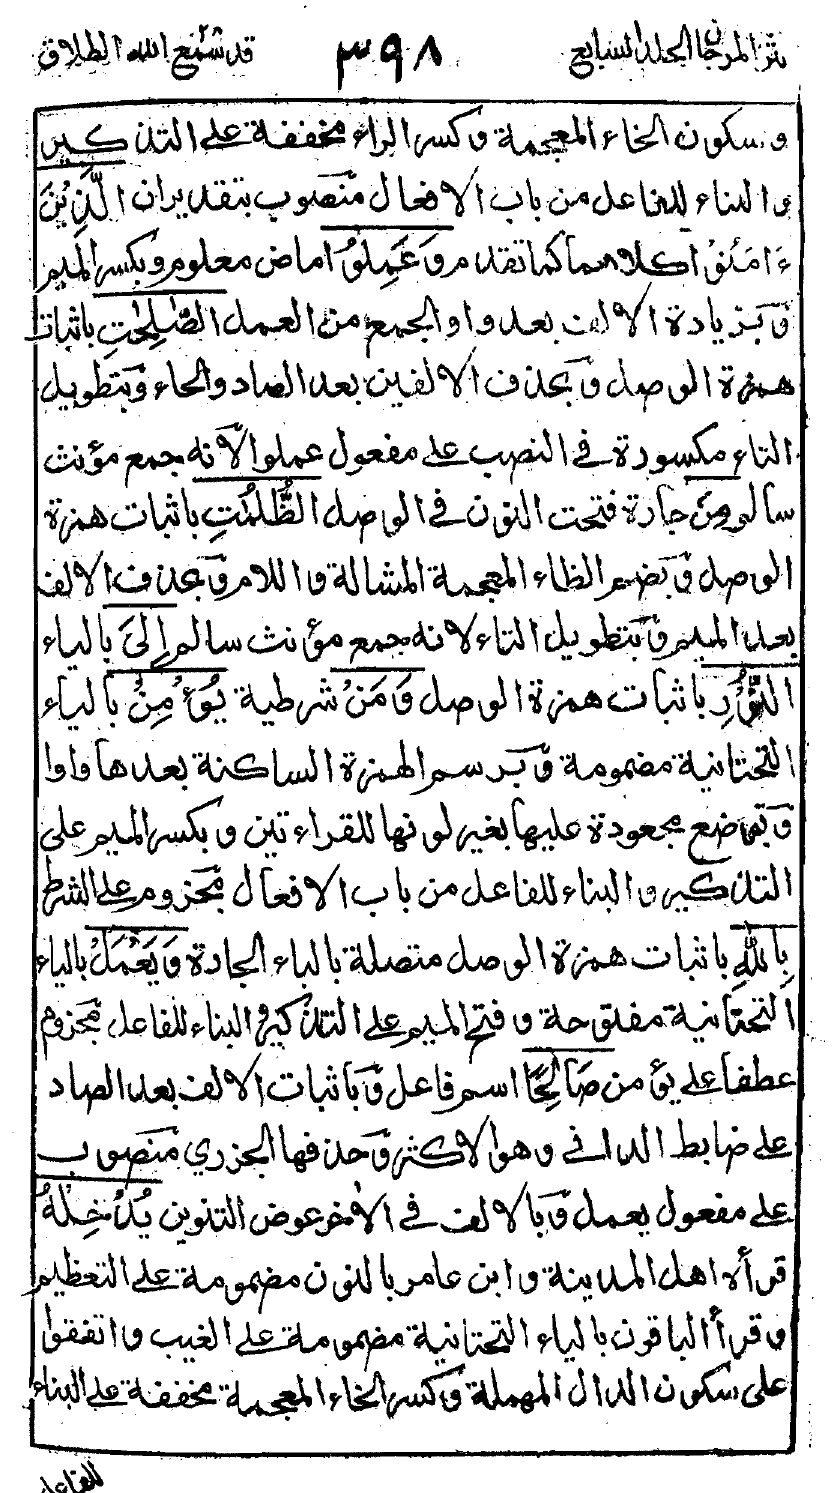 نثر المرجان الجلد السابع ٣٩٨ قد سمع الله الطلاق
و سكون الخاء المعجمة و كسر الراء مخففة على التذكير
و البناء للفاعل من باب الافعال منصوب بتقدير ان الَّذِيْنَ
ءَامَنُوْا كلاهما كما تقدم وَ عَمِلُوْا ماض معلوم و بكسر الميم
و بزيادة الالف بعد واو الجمع من العمل الصّٰلِحٰتِ باثبات
همزة الوصل و بحذف الالفين بعد الصاد والحاء و بتطويل
التاء مكسورة في النصب على مفعول عملوا لانه جمع مؤنث
سالم مِنَ جارة فتحت النون في الوصل الظُّلُمٰتِ باثبات همزة
الوصل و بضم الظاء المعجمة المشالة و اللام و بحذف الالف
بعد الميم و بتطويل التاء لانه جمع مؤنث سالم اِلَى بالياء
النُّوْرِ باثبات همزة الوصل وَ مَنْ شرطية يُؤْمِنْ بالياء
التحتانية مضمومة و برسم الهمزة الساكنة بعدها واوا
و بوضع مجعودة عليها بغير لونها للقراءتين و بكسر الميم على
التذكير و البناء للفاعل من باب الافعال مجزوم على الشرط
بِاللهِ باثبات همزة الوصل متصلة بالباء الجارة وَ يَعْمَلْ بالياء
التحتانية مفتوحة و فتح الميم على التذكير و البناء للفاعل مجزوم
عطفا على يؤمن صَالِحًا اسم فاعل و باثبات الالف بعد الصاد
على ضابط الداني و هو الاكثر و حذفها الجزري منصوب
على مفعول يعمل و بالالف في الاخر عوض التنوين يُدْخِلْهُ
قرأه اهل المدينة و ابن عامر بالنون مضمومة على التعظيم
و قرأ الباقون بالياء التحتانية مضمومة على الغيب و اتفقوا
على سكون الدال المهملة و كسر الخاء المعجمة مخففة على البناء
للفاعل